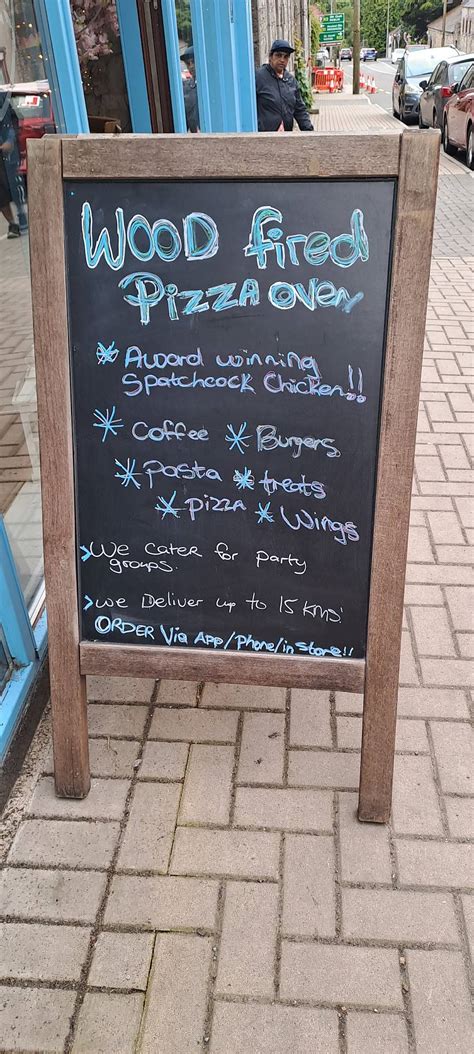 WOOD fired
Pizza oven
* Award winning
Spatchcock Chicken!!
* Coffee * Burgers
* Pasta * treats
* pizza * Wings
> We cater for party
groups.
> we Deliver up to 15 kms!
ORDER Via App/Phone/in store!!